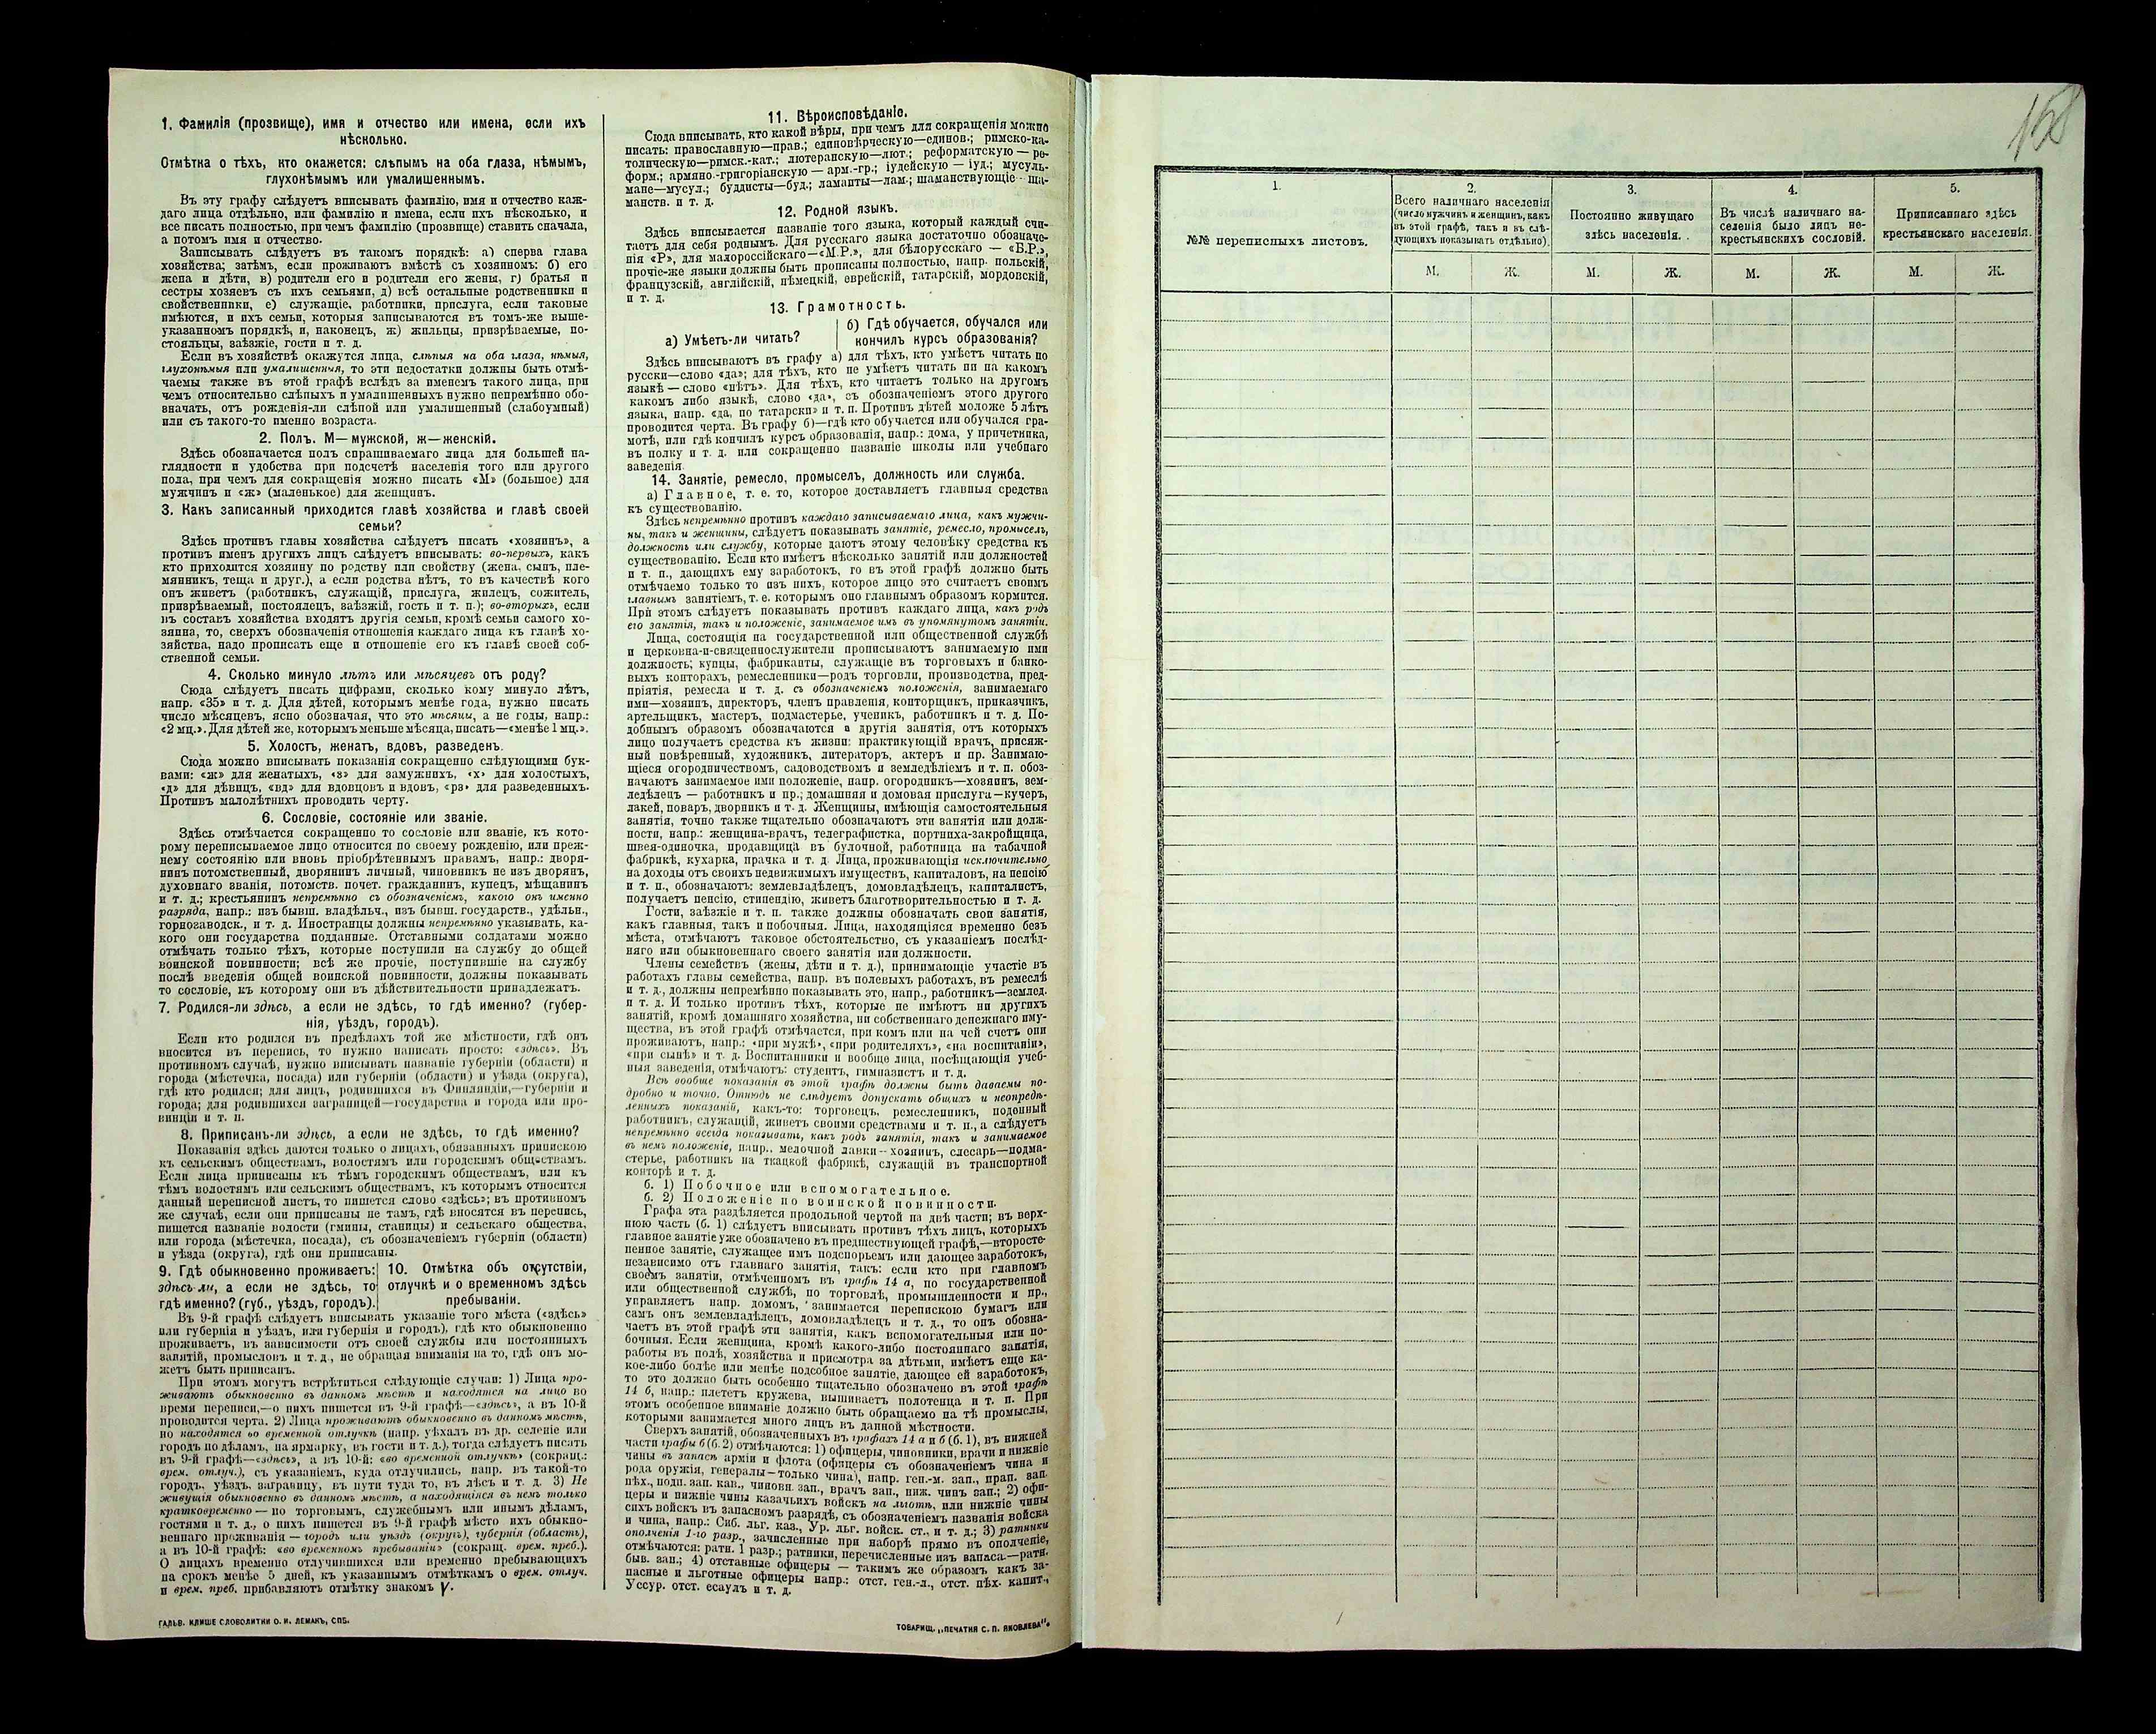 1. Фамилія (прозвище), имя и отчество или имена, если ихъ
нѣсколько.
Отмѣтка о тѣхъ, кто окажется: слѣпымъ на оба глаза, нѣмымъ,
глухонѣмымъ или умалишеннымъ.
Въ эту графу слѣдуетъ вписывать фамилію, имя и отчество каж-
даго лица отдѣльно, или фамилію и имена, если ихъ нѣсколько, и
все писать полностью, при чемъ фамилію (прозвище) ставить сначала,
а потомъ имя и отчество.
Записывать слѣдуетъ въ такомъ порядкѣ: а) сперва глава
хозяйства; затѣмъ, если проживаютъ вмѣстѣ съ хозяиномъ: б) его
жена и дѣти, в) родители его и родители его жены, г) братья и
сестры хозяевъ съ ихъ семьями, д) всѣ остальные родственники и
свойственники, е) служащіе, работники, прислуга, если таковые
имѣются, и ихъ семьи, которыя записываются въ томъ-же выше-
указанномъ порядкѣ, и, наконецъ, ж) жильцы, призрѣваемые, по-
стояльцы, заѣзжіе, гости и т. д.
Если въ хозяйствѣ окажутся лица, слѣпыя на оба глаза, нѣмыя,
глухонѣмыя или умалишенныя, то эти недостатки должны быть отмѣ-
чаемы также въ этой графѣ вслѣдъ за именемъ такого лица, при
чемъ относительно слѣпыхъ и умалишенныхъ нужно непремѣнно обо-
значать, отъ рожденія-ли слѣпой или умалишенный (слабоумный)
или съ такого-то именно возраста.
2. Полъ. М—мужской, ж—женскій.
Здѣсь обозначается полъ спрашиваемаго лица для большей на-
глядности и удобства при подсчетѣ населенія того или другого
пола, при чемъ для сокращенія можно писать «М» (большое) для
мужчинъ и «ж» (маленькое) для женщинъ.
3. Какъ записанный приходится главѣ хозяйства и главѣ своей
семьи?
Здѣсь противъ главы хозяйства слѣдуетъ писать «хозяинъ», а
противъ именъ другихъ лицъ слѣдуетъ вписывать: во-первыхъ, какъ
кто приходится хозяину по родству или свойству (жена, сынъ, пле-
мянникъ, теща и друг.), а если родства нѣтъ, то въ качествѣ кого
онъ живетъ (работникъ, служащій, прислуга, жилецъ, сожитель,
призрѣваемый, постоялецъ, заѣзжій, гость и т. п.); во-вторыхъ, если
въ составъ хозяйства входятъ другія семьи, кромѣ семьи самого хо-
зяина, то, сверхъ обозначенія отношенія каждаго лица къ главѣ хо-
зяйства, надо прописать еще и отношеніе его къ главѣ своей соб-
ственной семьи.
4. Сколько минуло лѣтъ или мѣсяцевъ отъ роду?
Сюда слѣдуетъ писать цифрами, сколько кому минуло лѣтъ,
напр. «35» и т. д. Для дѣтей, которымъ менѣе года, нужно писать
число мѣсяцевъ, ясно обозначая, что это мѣсяцы, а не годы, напр.:
«2 мц.». Для дѣтей же, которымъ меньше мѣсяца, писать—«менѣе 1 мц.».
5. Холостъ, женатъ, вдовъ, разведенъ.
Сюда можно вписывать показанія сокращенно слѣдующими бук-
вами: «ж» для женатыхъ, «з» для замужнихъ, «х» для холостыхъ,
«д» для дѣвицъ, «вд» для вдовцовъ и вдовъ, «рз» для разведенныхъ.
Противъ малолѣтнихъ проводить черту.
6. Сословіе, состояніе или званіе.
Здѣсь отмѣчается сокращенно то сословіе или званіе, къ кото-
рому переписываемое лицо относится по своему рожденію, или преж-
нему состоянію или вновь пріобрѣтеннымъ правамъ, напр.: дворя-
нинъ потомственный, дворянинъ личный, чиновникъ не изъ дворянъ,
духовнаго званія, потомств. почет. гражданинъ, купецъ, мѣщанинъ
и т. д.; крестьянинъ непремѣнно съ обозначеніемъ, какого онъ именно
разряда, напр.: изъ бывш. владѣльч., изъ бывш. государств., удѣльн.,
горнозаводск., и т. д. Иностранцы должны непремѣнно указывать, ка-
кого они государства подданные. Отставными солдатами можно
отмѣчать только тѣхъ, которые поступили на службу до общей
воинской повинности; всѣ же прочіе, поступившіе на службу
послѣ введенія общей воинской повинности, должны показывать
то сословіе, къ которому они въ дѣйствительности принадлежатъ.
7. Родился-ли здѣсь, а если не здѣсь, то гдѣ именно? (губер-
нія, уѣздъ, городъ).
Если кто родился въ предѣлахъ той же мѣстности, гдѣ онъ
вносится въ перепись, то нужно написать просто: «здѣсь». Въ
противномъ случаѣ, нужно вписывать названіе губерніи (области) и
города (мѣстечка, посада) или губерніи (области) и уѣзда (округа),
гдѣ кто родился; для лицъ, родившихся въ Финляндіи,—губерніи и
города; для родившихся заграницей—государства и города или про-
винціи и т. п.
8. Приписанъ-ли здѣсь, а если не здѣсь, то гдѣ именно?
Показанія здѣсь даются только о лицахъ, обязанныхъ припискою
къ сельскимъ обществамъ, волостямъ или городскимъ обществамъ.
Если лица приписаны къ тѣмъ городскимъ обществамъ, или къ
тѣмъ волостямъ или сельскимъ обществамъ, къ которымъ относится
данный переписной листъ, то пишется слово «здѣсь»; въ противномъ
же случаѣ, если они приписаны не тамъ, гдѣ вносятся въ перепись,
пишется названіе волости (гмины, станицы) и сельскаго общества,
или города (мѣстечка, посада), съ обозначеніемъ губерніи (области)
и уѣзда (округа), гдѣ они приписаны.
9. Гдѣ обыкновенно проживаетъ:
здѣсь-ли, а если не здѣсь, то
гдѣ именно? (губ., уѣздъ, городъ).
10. Отмѣтка объ отсутствіи,
отлучкѣ и о временномъ здѣсь
пребываніи.
Въ 9-й графѣ слѣдуетъ вписывать указаніе того мѣста («здѣсь»
или губернія и уѣздъ, или губернія и городъ), гдѣ кто обыкновенно
проживаетъ, въ зависимости отъ своей службы или постоянныхъ
занятій, промысловъ и т. д., не обращая вниманія на то, гдѣ онъ мо-
жетъ быть приписанъ.
При этомъ могутъ встрѣтиться слѣдующіе случаи: 1) Лица про-
живаютъ обыкновенно въ данномъ мѣстѣ и находятся на лицо во
время переписи,—о нихъ пишется въ 9-й графѣ—«здѣсь», а въ 10-й
проводится черта. 2) Лица проживаютъ обыкновенно въ данномъ мѣстѣ,
но находятся во временной отлучкѣ (напр. уѣхалъ въ др. селеніе или
городъ по дѣламъ, на ярмарку, въ гости и т. д.), тогда слѣдуетъ писать
въ 9-й графѣ—«здѣсь», а въ 10-й: «во временной отлучкѣ» (сокращ.:
врем. отлуч.), съ указаніемъ, куда отлучились, напр. въ такой-то
городъ, уѣздъ, заграницу, въ пути туда то, въ лѣсъ и т. д. 3) Не
живущія обыкновенно въ данномъ мѣстѣ, а находящіяся въ немъ только
кратковременно — по торговымъ, служебнымъ или инымъ дѣламъ,
гостями и т. д., о нихъ пишется въ 9-й графѣ мѣсто ихъ обыкно-
веннаго проживанія — городъ или уѣздъ (округъ), губернія (область),
а въ 10-й графѣ: «во временномъ пребываніи» (сокращ. врем. преб.).
О лицахъ временно отлучившихся или временно пребывающихъ
на срокъ менѣе 5 дней, къ указаннымъ отмѣткамъ о врем. отлуч.
и врем. преб. прибавляютъ отмѣтку знакомъ V.
ГАЛЬВ. КЛИШЕ СЛОВОЛИТНИ О. И. ЛЕМАНЪ, СПБ.
11. Вѣроисповѣданіе.
Сюда вписывать, кто какой вѣры, при чемъ для сокращенія можно
писать: православную—прав.; единовѣрческую—единов.; римско-ка-
толическую—римск.-кат.; лютеранскую—лют.; реформатскую — ре-
форм.; армяно-григоріанскую — арм.-гр.; іудейскую — іуд.; мусуль-
мане—мусул.; буддисты—буд.; ламаиты—лам.; шаманствующіе - ша-
манств. и т. д.
12. Родной языкъ.
Здѣсь вписывается названіе того языка, который каждый счи-
таетъ для себя роднымъ. Для русскаго языка достаточно обозначе-
нія «Р», для малороссійскаго—«М.Р.», для бѣлорусскаго — «Б.Р.»,
прочіе-же языки должны быть прописаны полностью, напр. польскій,
французскій, англійскій, нѣмецкій, еврейскій, татарскій, мордовскій,
и т. д.
13. Грамотность.
а) Умѣетъ-ли читать?
б) Гдѣ обучается, обучался или
кончилъ курсъ образованія?
Здѣсь вписываютъ въ графу а) для тѣхъ, кто умѣетъ читать по
русски—слово «да»; для тѣхъ, кто не умѣетъ читать ни на какомъ
языкѣ — слово «нѣтъ». Для тѣхъ, кто читаетъ только на другомъ
какомъ либо языкѣ, слово «да», съ обозначеніемъ этого другого
языка, напр. «да, по татарски» и т. п. Противъ дѣтей моложе 5 лѣтъ
проводится черта. Въ графу б)—гдѣ кто обучается или обучался гра-
мотѣ, или гдѣ кончилъ курсъ образованія, напр.: дома, у причетника,
въ полку и т. д. или сокращенно названіе школы или учебнаго
заведенія.
14. Занятіе, ремесло, промыселъ, должность или служба.
а) Главное, т. е. то, которое доставляетъ главныя средства
къ существованію.
Здѣсь непремѣнно противъ каждаго записываемаго лица, какъ мужчи-
ны, такъ и женщины, слѣдуетъ показывать занятіе, ремесло, промыселъ,
должность или службу, которые даютъ этому человѣку средства къ
существованію. Если кто имѣетъ нѣсколько занятій или должностей
и т. п., дающихъ ему заработокъ, то въ этой графѣ должно быть
отмѣчаемо только то изъ нихъ, которое лицо это считаетъ своимъ
главнымъ занятіемъ, т. е. которымъ оно главнымъ образомъ кормится.
При этомъ слѣдуетъ показывать противъ каждаго лица, какъ родъ
его занятія, такъ и положеніе, занимаемое имъ въ упомянутомъ занятіи.
Лица, состоящія на государственной или общественной службѣ
и церковна-и-священнослужители прописываютъ занимаемую ими
должность; купцы, фабриканты, служащіе въ торговыхъ и банко-
выхъ конторахъ, ремесленники—родъ торговли, производства, пред-
пріятія, ремесла и т. д. съ обозначеніемъ положенія, занимаемаго
ими—хозяинъ, директоръ, членъ правленія, конторщикъ, приказчикъ,
артельщикъ, мастеръ, подмастерье, ученикъ, работникъ и т. д. По-
добнымъ образомъ обозначаются и другія занятія, отъ которыхъ
лицо получаетъ средства къ жизни: практикующій врачъ, присяж-
ный повѣренный, художникъ, литераторъ, актеръ и пр. Занимаю-
щіеся огородничествомъ, садоводствомъ и земледѣліемъ и т. п. обоз-
начаютъ занимаемое ими положеніе, напр. огородникъ—хозяинъ, зем-
ледѣлецъ — работникъ и пр.; домашняя и домовая прислуга—кучеръ,
лакей, поваръ, дворникъ и т. д. Женщины, имѣющія самостоятельныя
занятія, точно также тщательно обозначаютъ эти занятія или долж-
ности, напр.: женщина-врачъ, телеграфистка, портниха-закройщица,
швея-одиночка, продавщица въ булочной, работница на табачной
фабрикѣ, кухарка, прачка и т. д. Лица, проживающія исключительно
на доходы отъ своихъ недвижимыхъ имуществъ, капиталовъ, на пенсію
и т. п., обозначаютъ: землевладѣлецъ, домовладѣлецъ, капиталистъ,
получаетъ пенсію, стипендію, живетъ благотворительностью и т. д.
Гости, заѣзжіе и т. п. также должны обозначать свои занятія,
какъ главныя, такъ и побочныя. Лица, находящіяся временно безъ
мѣста, отмѣчаютъ таковое обстоятельство, съ указаніемъ послѣд-
няго или обыкновеннаго своего занятія или должности.
Члены семействъ (жены, дѣти и т. д.), принимающіе участіе въ
работахъ главы семейства, напр. въ полевыхъ работахъ, въ ремеслѣ
и т. д., должны непремѣнно показывать это, напр., работникъ—землед.
и т. д. И только противъ тѣхъ, которые не имѣютъ ни другихъ
занятій, кромѣ домашняго хозяйства, ни собственнаго денежнаго иму-
щества, въ этой графѣ отмѣчается, при комъ или на чей счетъ они
проживаютъ, напр.: «при мужѣ», «при родителяхъ», «на воспитаніи»,
«при сынѣ» и т. д. Воспитанники и вообще лица, посѣщающія учеб-
ныя заведенія, отмѣчаютъ: студентъ, гимназистъ и т. д.
Всѣ вообще показанія въ этой графѣ должны быть даваемы по-
дробно и точно. Отнюдь не слѣдуетъ допускать общихъ и неопредѣ-
ленныхъ показаній, какъ-то: торговецъ, ремесленникъ, поденный
работникъ, служащій, живетъ своими средствами и т. п., а слѣдуетъ
непремѣнно всегда показывать, какъ родъ занятія, такъ и занимаемое
въ немъ положеніе, напр.. мелочной лавки--хозяинъ, слесарь—подма-
стерье, работникъ на ткацкой фабрикѣ, служащій въ транспортной
конторѣ и т. д.
б. 1) Побочное или вспомогательное.
б. 2) Положеніе по воинской повинности.
Графа эта раздѣляется продольной чертой на двѣ части; въ верх-
нюю часть (б. 1) слѣдуетъ вписывать противъ тѣхъ лицъ, которыхъ
главное занятіе уже обозначено въ предшествующей графѣ,—второсте-
пенное занятіе, служащее имъ подспорьемъ или дающее заработокъ,
независимо отъ главнаго занятія, такъ: если кто при главномъ
своемъ занятіи, отмѣченномъ въ графѣ 14 а, по государственной
или общественной службѣ, по торговлѣ, промышленности и пр.,
управляетъ напр. домомъ, занимается перепискою бумагъ или
самъ онъ землевладѣлецъ, домовладѣлецъ и т. д., то онъ обозна-
чаетъ въ этой графѣ эти занятія, какъ вспомогательныя или по-
бочныя. Если женщина, кромѣ какого-либо постояннаго занятія,
работы въ полѣ, хозяйства и присмотра за дѣтьми, имѣетъ еще ка-
кое-либо болѣе или менѣе подсобное занятіе, дающее ей заработокъ,
то это должно быть особенно тщательно обозначено въ этой графѣ
14 б, напр.: плететъ кружева, вышиваетъ полотенца и т. п. При
этомъ особенное вниманіе должно быть обращаемо на тѣ промыслы,
которыми занимается много лицъ въ данной мѣстности.
Сверхъ занятій, обозначенныхъ въ графахъ 14 а и б (б. 1), въ нижней
части графы б (б. 2) отмѣчаются: 1) офицеры, чиновники, врачи и нижніе
чины въ запасѣ арміи и флота (офицеры съ обозначеніемъ чина и
рода оружія, генералы—только чина), напр. ген.-м. зап., прап. зап.
пѣх., подп. зап. кав., чиновн. зап., врачъ зап., ниж. чинъ зап.; 2) офи-
церы и нижніе чины казачьихъ войскъ на льготѣ, или нижніе чины
сихъ войскъ въ запасномъ разрядѣ, съ обозначеніемъ названія войска
и чина, напр.: Сиб. льг. каз., Ур. льг. войск. ст., и т. д.; 3) ратники
ополченія 1-го разр., зачисленные при наборѣ прямо въ ополченіе,
отмѣчаются: ратн. 1 разр.; ратники, перечисленные изъ запаса.—ратн.
быв. зап.; 4) отставные офицеры — такимъ же образомъ какъ за-
пасные и льготные офицеры напр.: отст. ген.-л., отст. пѣх. капит.,
Уссур. отст. есаулъ и т. д.
ТОВАРИЩ. „ПЕЧАТНЯ С. П. ЯКОВЛЕВА“.
158
1.
2.
3.
4.
5.
№№ переписныхъ листовъ.
Всего наличнаго населенія
(число мужчинъ и женщинъ, какъ
въ этой графѣ, такъ и въ слѣ-
дующихъ показывать отдѣльно).
Постоянно живущаго
здѣсь населенія.
Въ числѣ наличнаго на-
селенія было лицъ не-
крестьянскихъ сословій.
Приписаннаго здѣсь
крестьянскаго населенія.
М. Ж. М. Ж. М. Ж. М. Ж.